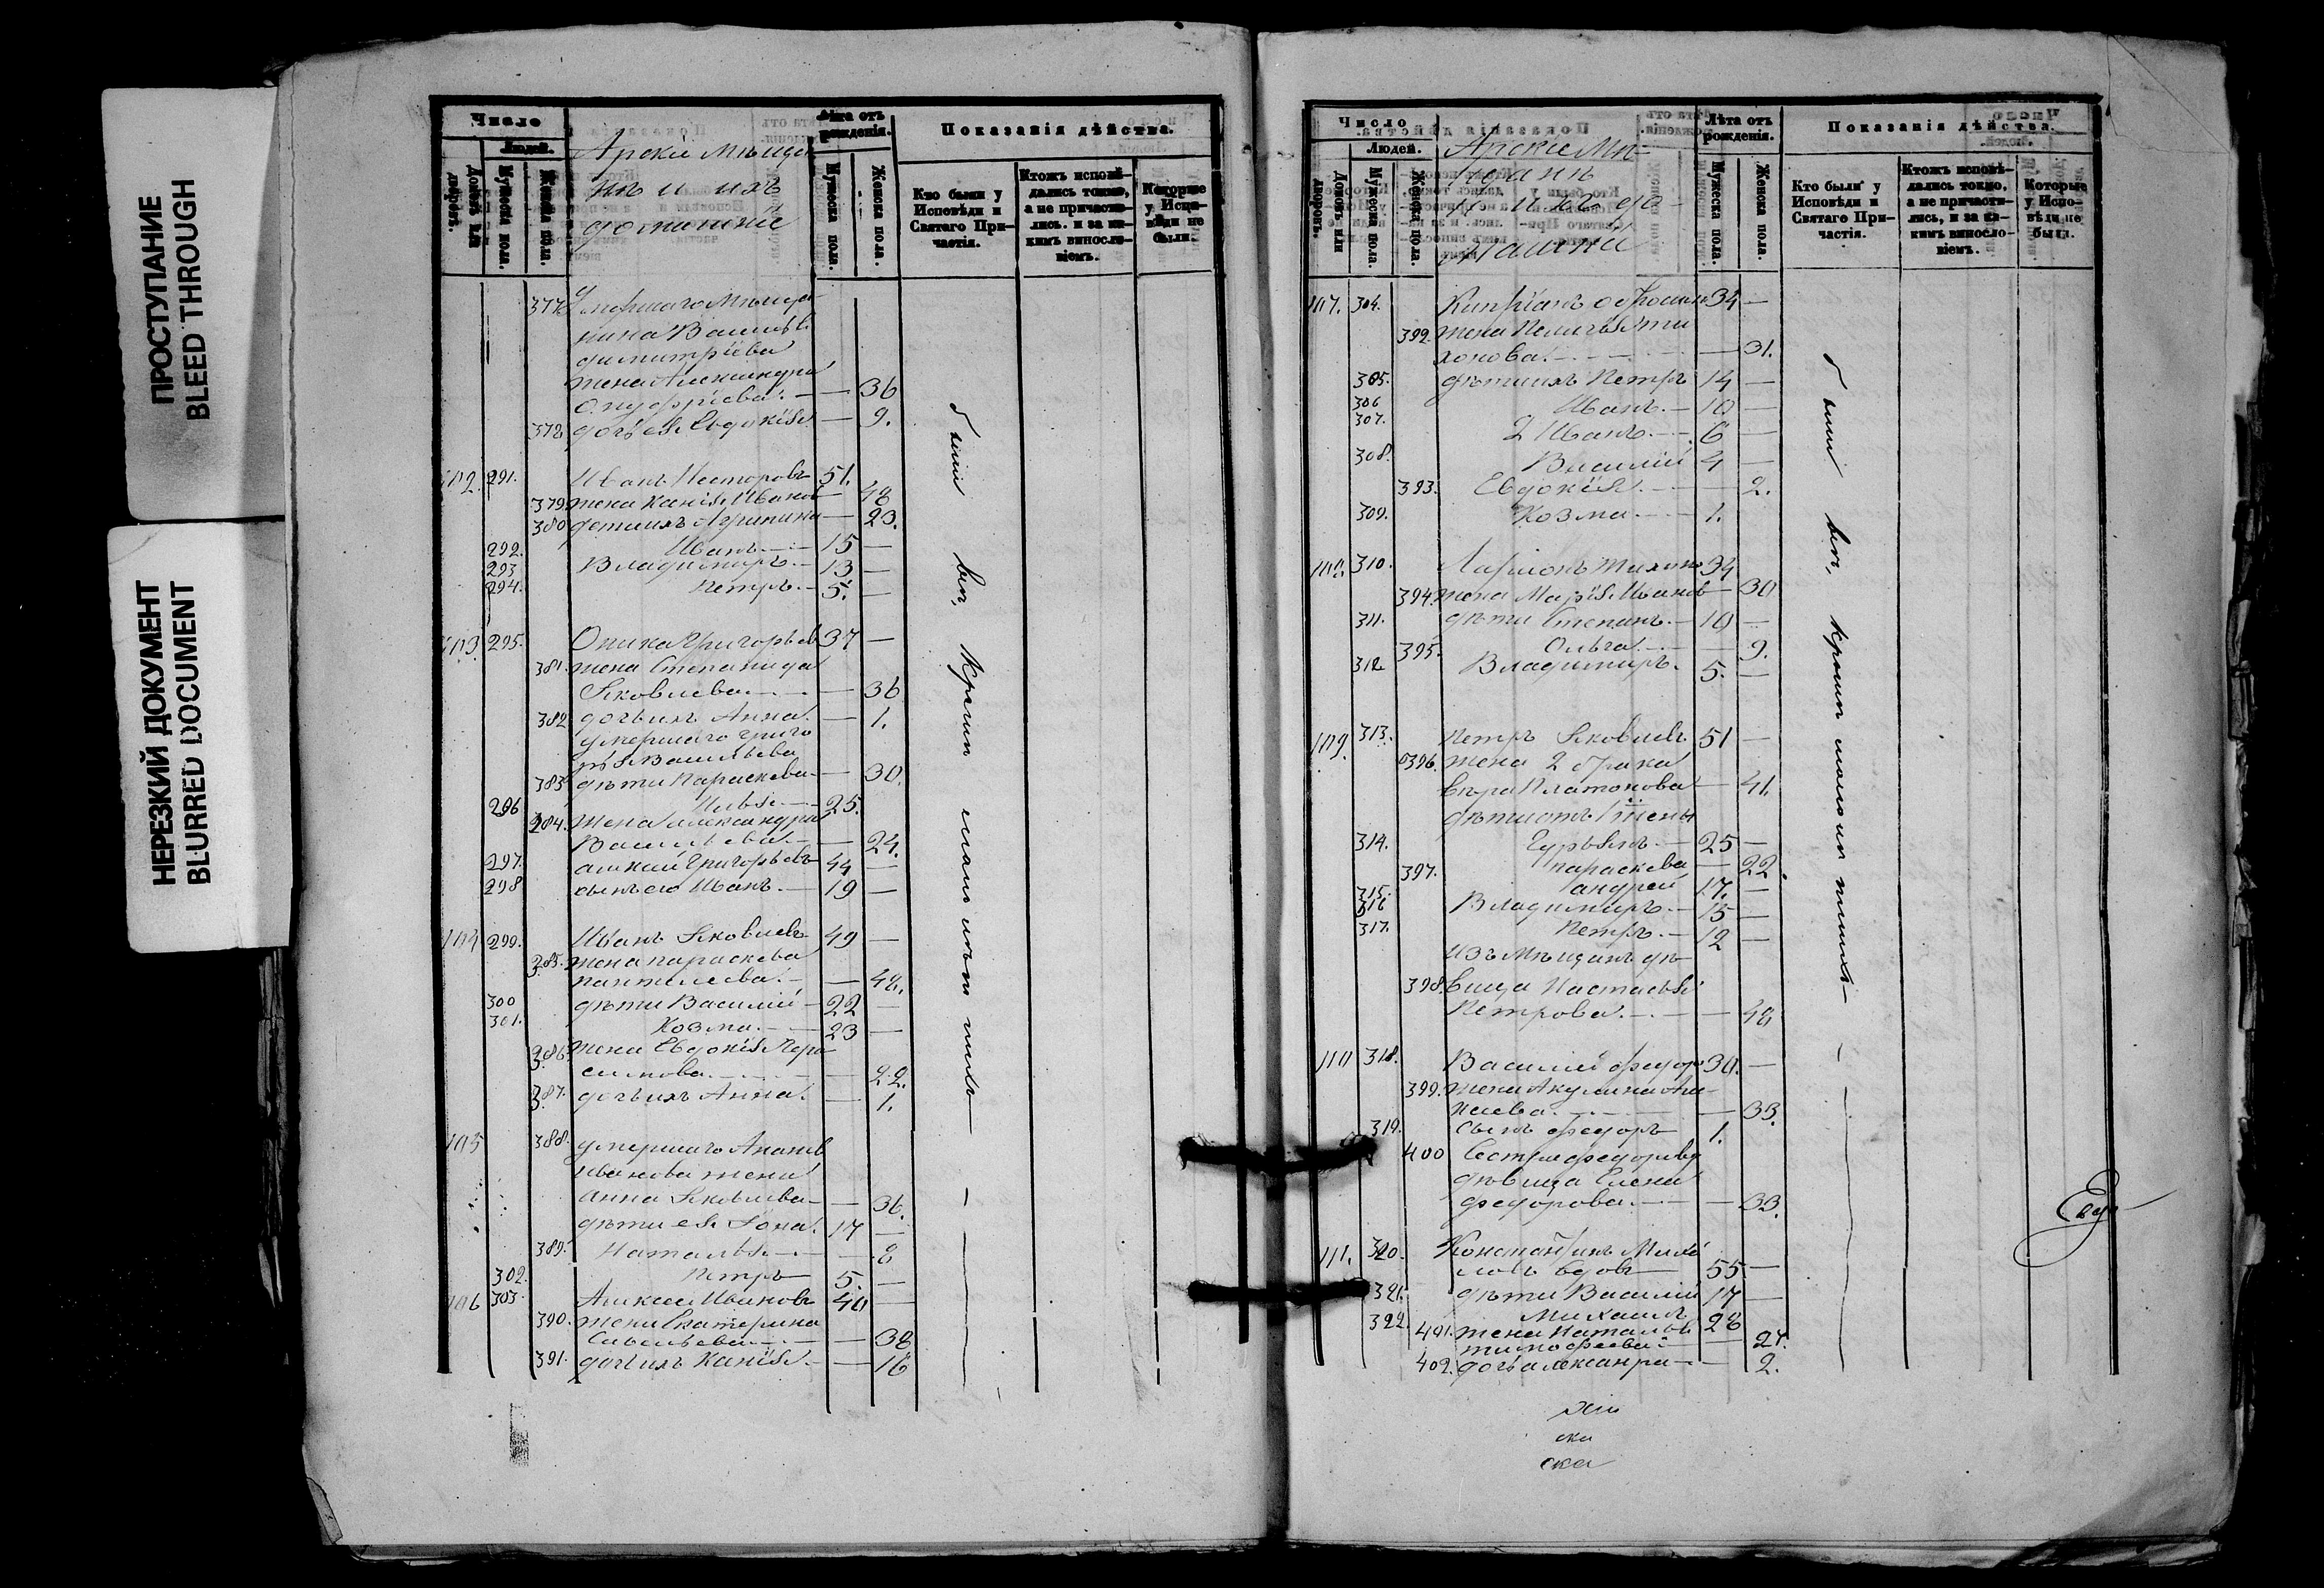 ПРОСТУПАНИЕ
BLEED THROUGH
НЕРЕЗКИЙ ДОКУМЕНТ
BLURRED DOCUMENT
Число
Людей.
Домовъ или дворовъ.
Мужеска пола.
Женска пола.
Арскіе мѣща
не и ихъ
домашніе
Лѣта отъ рожденія.
Мужеска пола.
Женска пола.
Показанія дѣйства.
Кто были у Исповѣди и Святаго Причастія.
Ктожъ исповѣдались токмо, а не причастились, и за какимъ винословіемъ.
Которые у Исповѣди не были.
377 Умершаго мѣща
нина Василья
димитріева
жена Александра
Онуфріева — 36
378 дочь ея Евдокія — 9.
102. 291. Иванъ Несторовъ 51.
379 жена Ксенія Иванов — 48
380 дети ихъ Агрипина — 23.
292. Иванъ 15 —
293 Владимиръ 13 —
294. Петръ 5. —
103. 295. Григорьев 37 —
381. жена Степанида
Яковлева — 36
382 дочь ихъ Анна — 1.
умершаго Григо
рья Васильева
383 дѣти Параскева — 30.
296 Илья 25.
384. жена александра
Васильева — 24.
297. Григорьевъ 44 —
298 сынъ его Иванъ 19 —
104 299. Иванъ Яковлевъ 49 —
385. жена параскева
пантелеева — 48.
300 дѣти Василій 22 —
301. Козма 23 —
386 жена Евдокія Гера
симова — 22.
387. дочь ихъ Анна — 1.
105 388. умершаго
иванова жена
анна Яковлева — 36.
дѣти ея 17 —
389. Наталья — 8
302. Петръ 5. —
106 303. Алексей Ивановъ 40 —
390. жена Екатерина
Савельева — 38
391. дочь ихъ Ксенія — 16
были вси, кромѣ малолѣтнихъ
Число
Людей.
Домовъ или дворовъ.
Мужеска пола.
Женска пола.
Арскіе мѣ-
щане
и ихъ до-
машніи
Лѣта отъ рожденія.
Мужеска пола.
Женска пола.
Показанія дѣйства.
Кто были у Исповѣди и Святаго Причастія.
Ктожъ исповѣдались токмо, а не причастились, и за какимъ винословіемъ.
Которые у Исповѣди не были.
107. 304. Кипріанъ 34 —
392. жена Пелагѣя Ти
хонова — 31.
305. дѣти ихъ Петръ 14 —
306 Иванъ 10 —
307. 2 Иванъ 6 —
308. Василій 4 —
393. Евдокія — 2.
309. Козма 1.
108. 310. Ларіонъ 34
394. жена Марія Иванов — 30
311. дѣти Степанъ 10 —
395. Ольга — 9.
312. Владимиръ 5. —
109. 313. Петръ Яковлевъ 51 —
396. жена 2 брака
Вѣра Платонова — 41.
дѣти отъ 1 жены
314. Гурьянъ 25 —
397. параскева — 22.
315. андрей 17. —
316 Владимиръ 15 —
317. Петръ 12 —
изъ мѣщанъ дѣ
398. вица Настасья
Петрова — 48
110 318. Василій федор 30. —
399. жена Акулина
— 33.
319. сынъ федоръ 1.
400
дѣвица Елена
федорова — 33.
111. 320. Константинъ Михаи
ловъ вдовъ 55 —
321. дѣти Василій 17 —
322. Михаилъ 28
401. жена Наталья
тимофеева — 27.
402. дочь александра — 2.
были вси, кромѣ малолѣтнихъ
ска